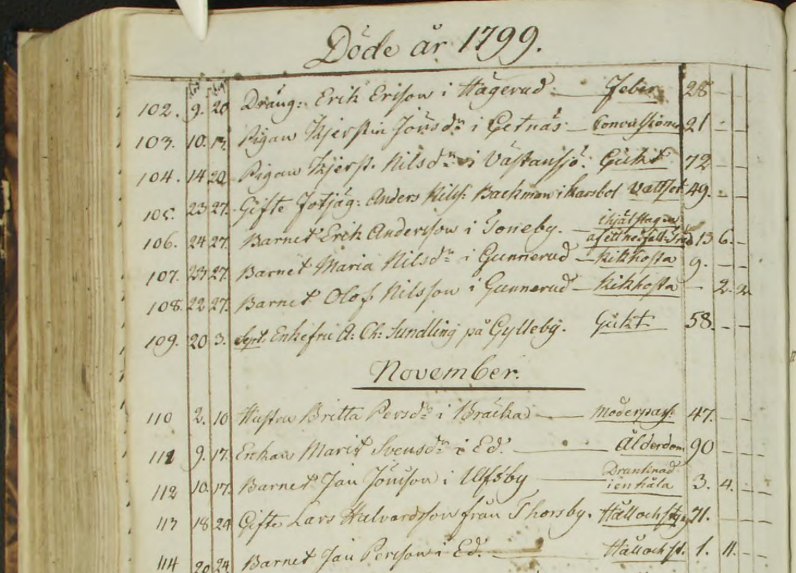 Döde år 1799.
102. 9. 20 Dräng: Erik Ersson i Hagerud Feber 28 - -
103. 10. 13. Pigan Kjerstin Jönsdr i Getnäs - Convulsioner 21
104. 14 20 Pigan Kjerst. Nilsdr i Västansjö. Gickt 72 - -
105. 23 27. Gifte Fotjäg. Anders Nilss. Backman i Vattsot 49. - -
106. 24 27. Barnet Erik Andersson i Toneby. - ihjälslagen af ett nedfalt Träd 13 6. -
107. 23 27. Barnet Maria Nilsdr i Gunnerud - Kikhosta 9. - -
108. 22 27. Barnet Olof Nilsson i Gunnerud - Kikhosta - 2. 2.
109. 20 3. Sept. Enkefru A: Ch: Sundling på Gylleby. Gickt 58. - -
November.
110 2. 10 Hustru Britta Persdr i Bräcka Moderpass. 47. - -
111 9. 17. Enkan Marit Svensdr i Ed. - Ålderdom 90 - -
112 10. 17. Barnet Jan Jönsson i Ulfsby Drunknad i en käla 3. 4. -
113 18 24 Gifte Lars Halvardsson från Thorsby. Håll och styng 71. - -
114 20 24 Barnet Jan Persson i Ed. Håll och st. 1. 11. -